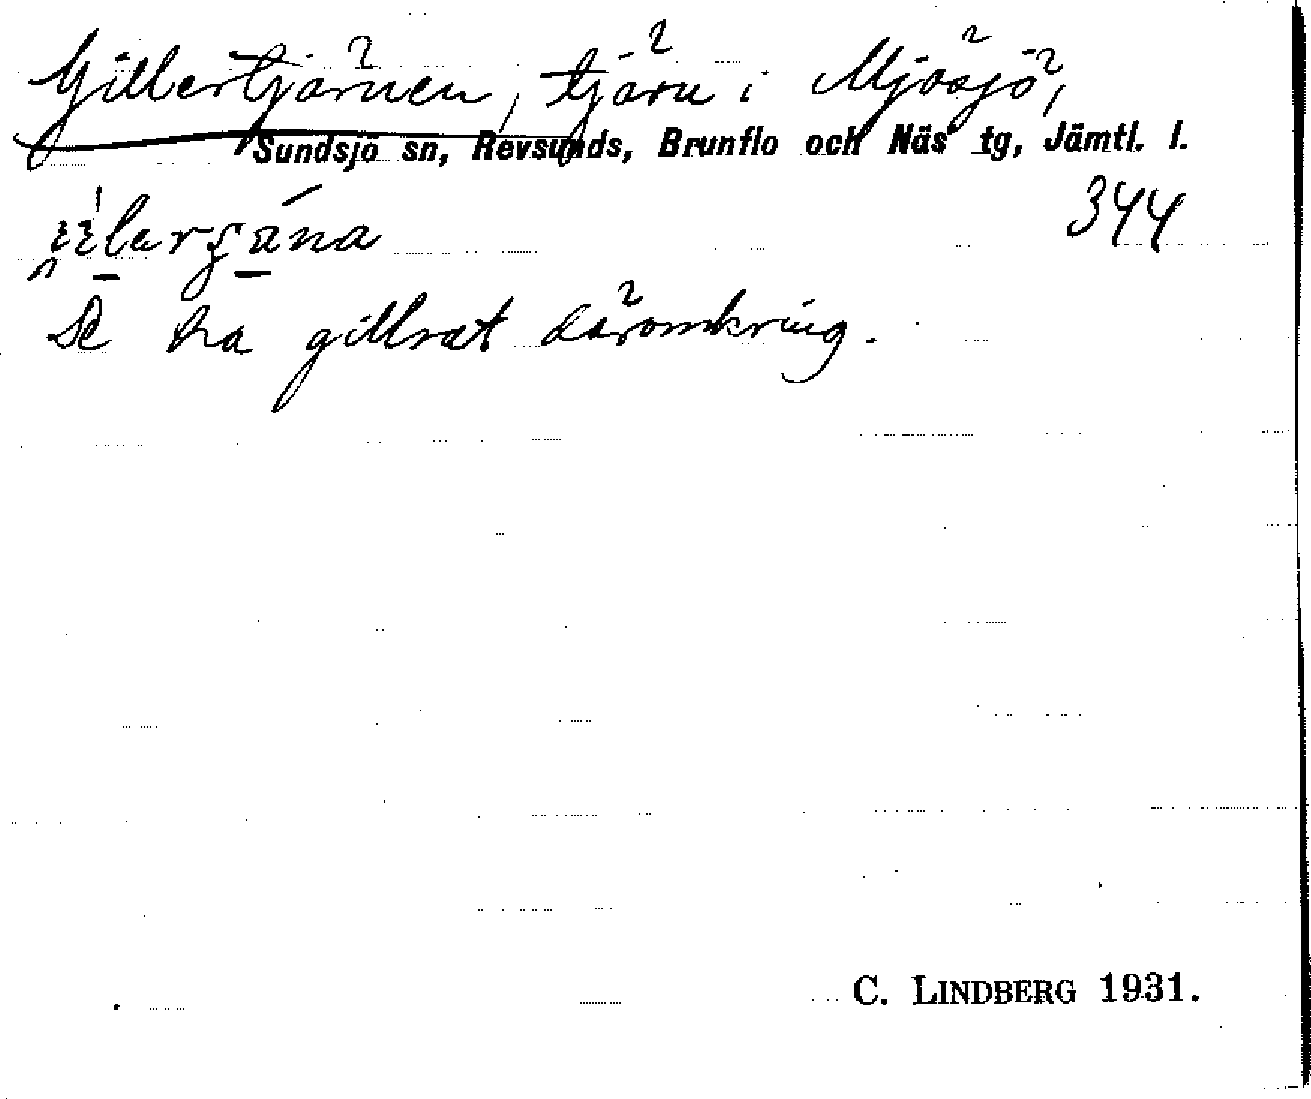 Gillertjärnen, tjärn i Mjösjö,
Sundsjö sn, Revsunds, Brunflo och Näs tg, Jämtl. l.
344
De ha gillrat däromkring.
C. LINDBERG 1931.